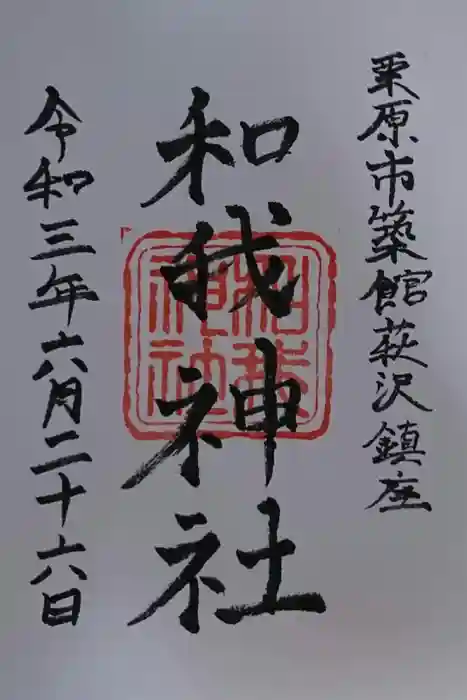 栗原市築館萩沢鎮座
和我神社
和我神社
令和三年六月二十六日